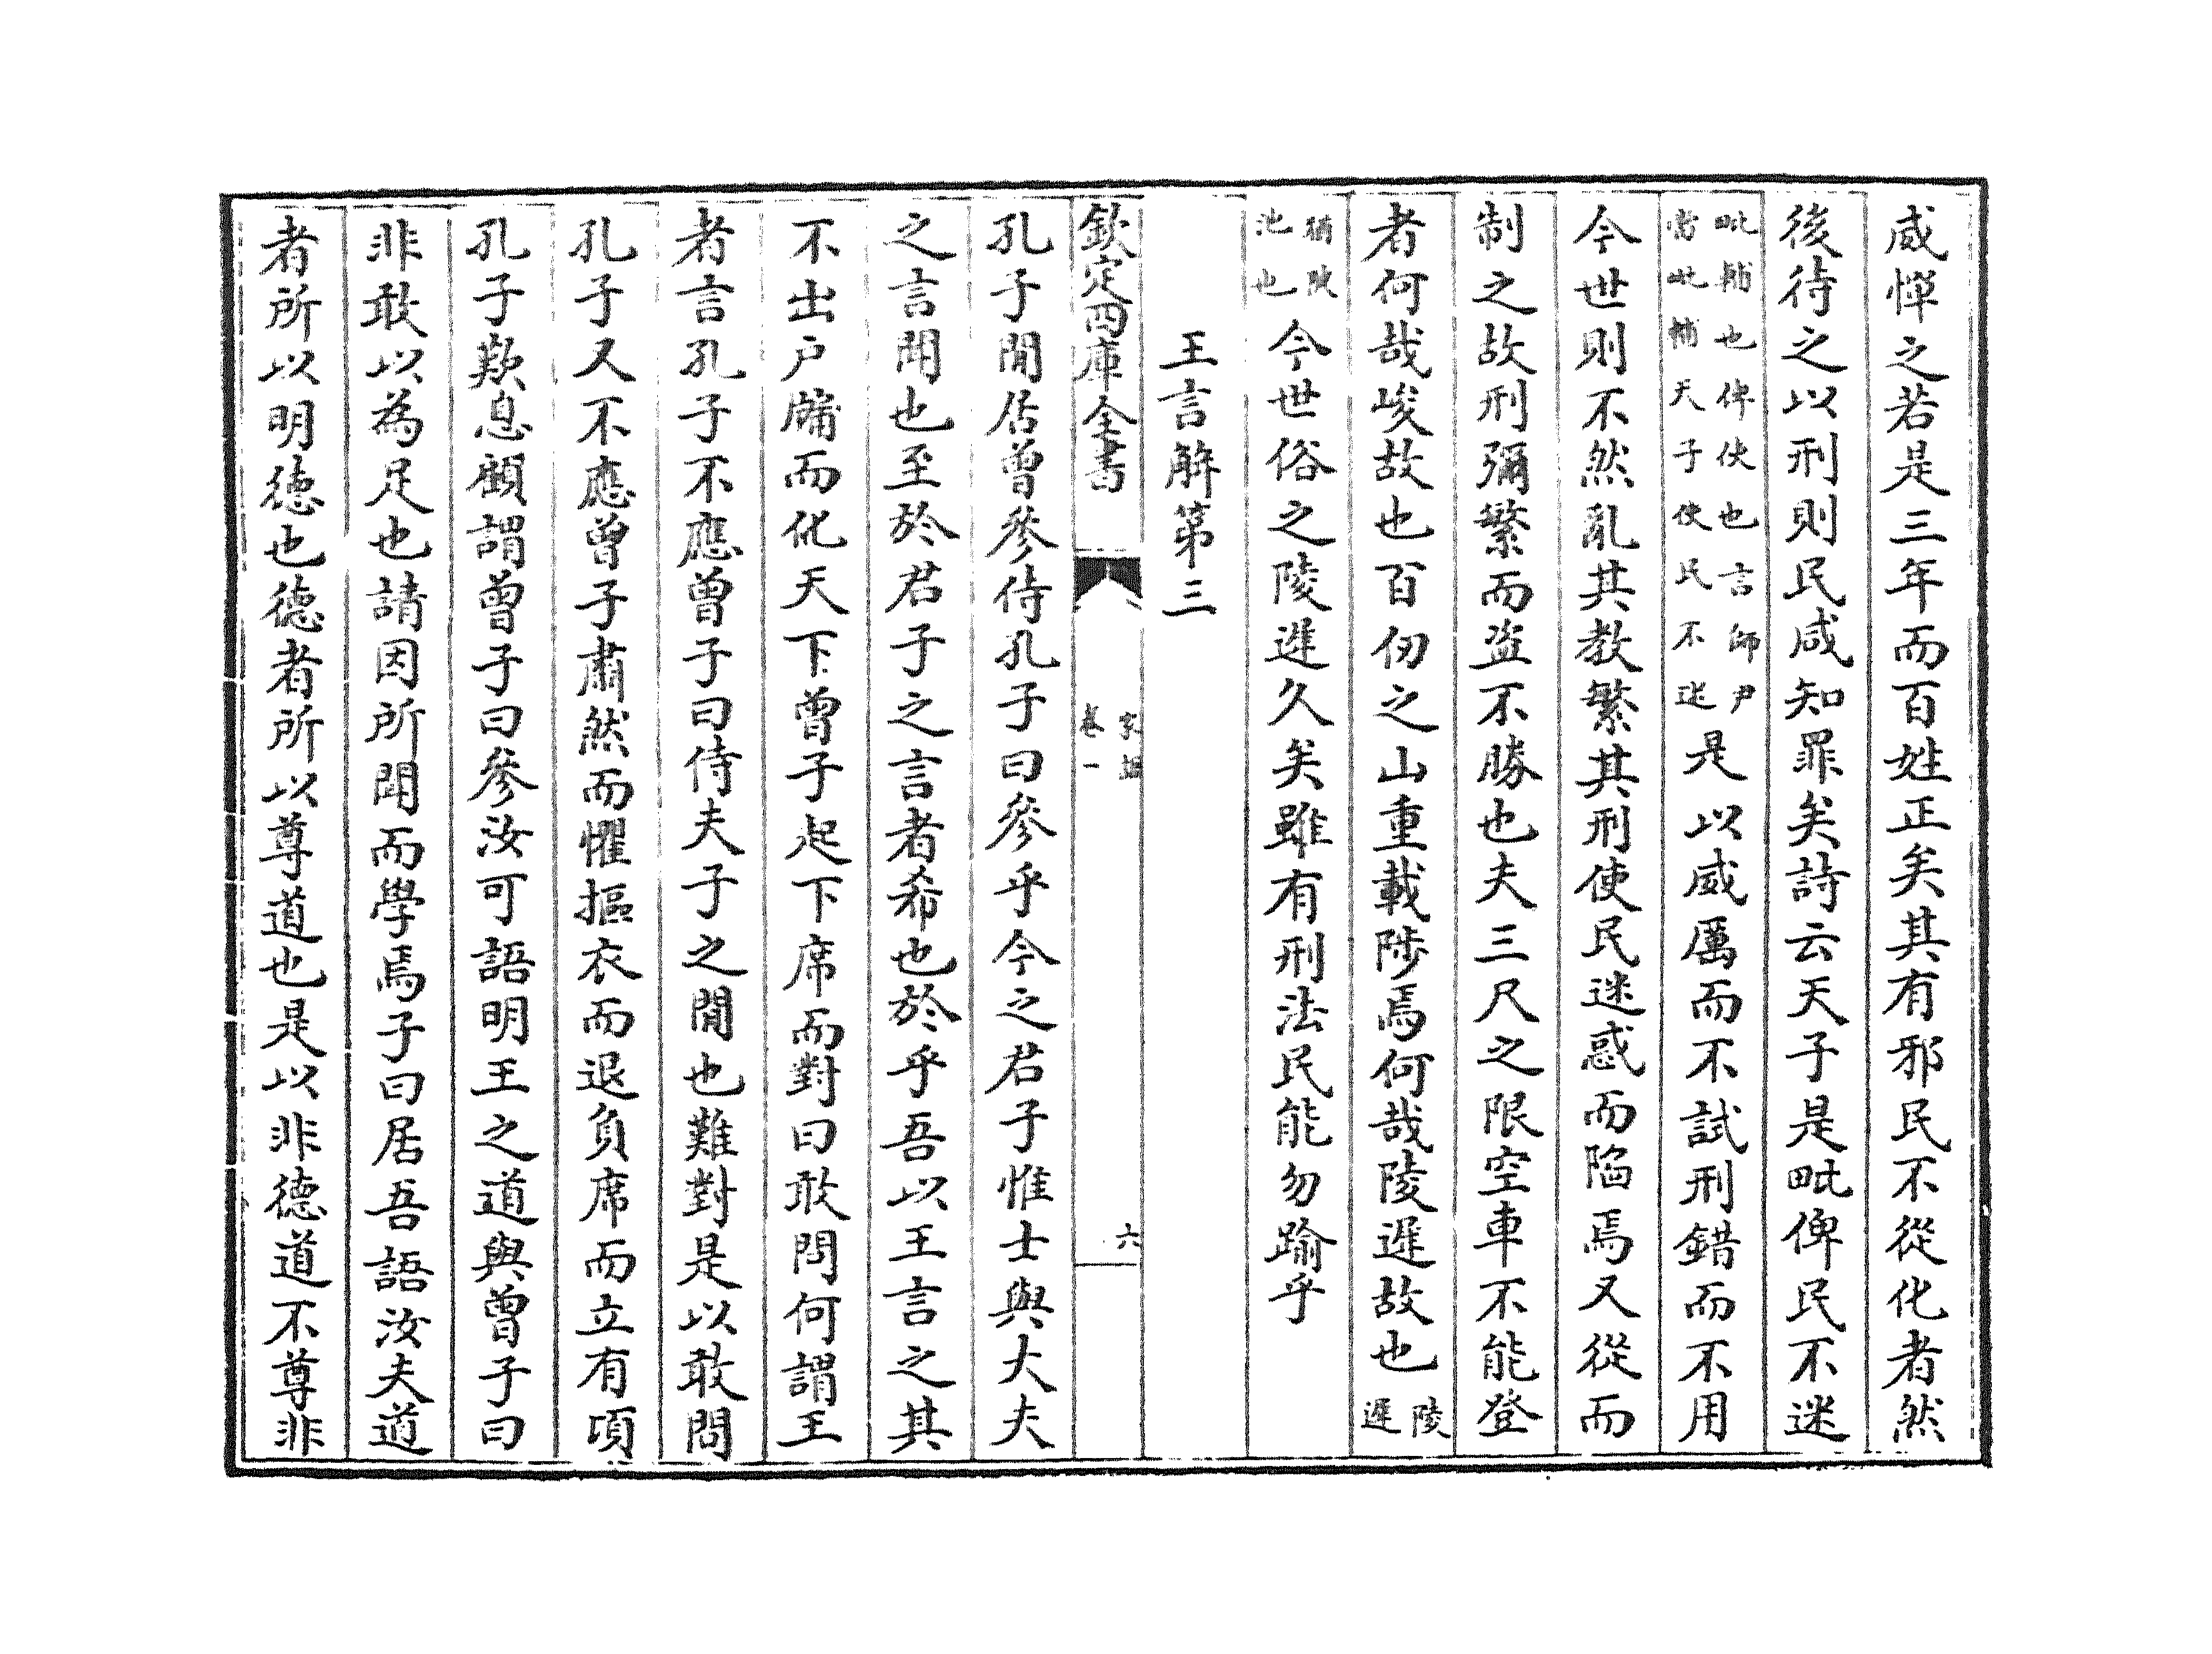 威憚之若是三年而百姓正矣其有邪民不從化者然
後待之以刑則民咸知罪矣詩云天子是毗俾民不迷
毗輔也俾使也言師尹
當毗輔天子使民不迷
是以威厲而不試刑錯而不用
今世則不然亂其教繁其刑使民迷惑而陷焉又從而
制之故刑彌繁而盗不勝也夫三尺之限空車不能登
者何哉峻故也百仞之山重載陟焉何哉陵遲故也
陵
遲
猶陂
池也
今世俗之陵遲久矣雖有刑法民能勿踰乎
王言解第三
欽定四庫全書
家語
卷一
六
孔子閒居曾參侍孔子曰參乎今之君子惟士與大夫
之言聞也至於君子之言者希也於乎吾以王言之其
不出戸牖而化天下曾子起下席而對曰敢問何謂王
者言孔子不應曾子曰侍夫子之閒也難對是以敢問
孔子又不應曾子肅然而懼摳衣而退負席而立有頃
孔子歎息顧謂曾子曰參汝可語明王之道與曾子曰
非敢以為足也請因所聞而學焉子曰居吾語汝夫道
者所以明德也德者所以尊道也是以非德道不尊非